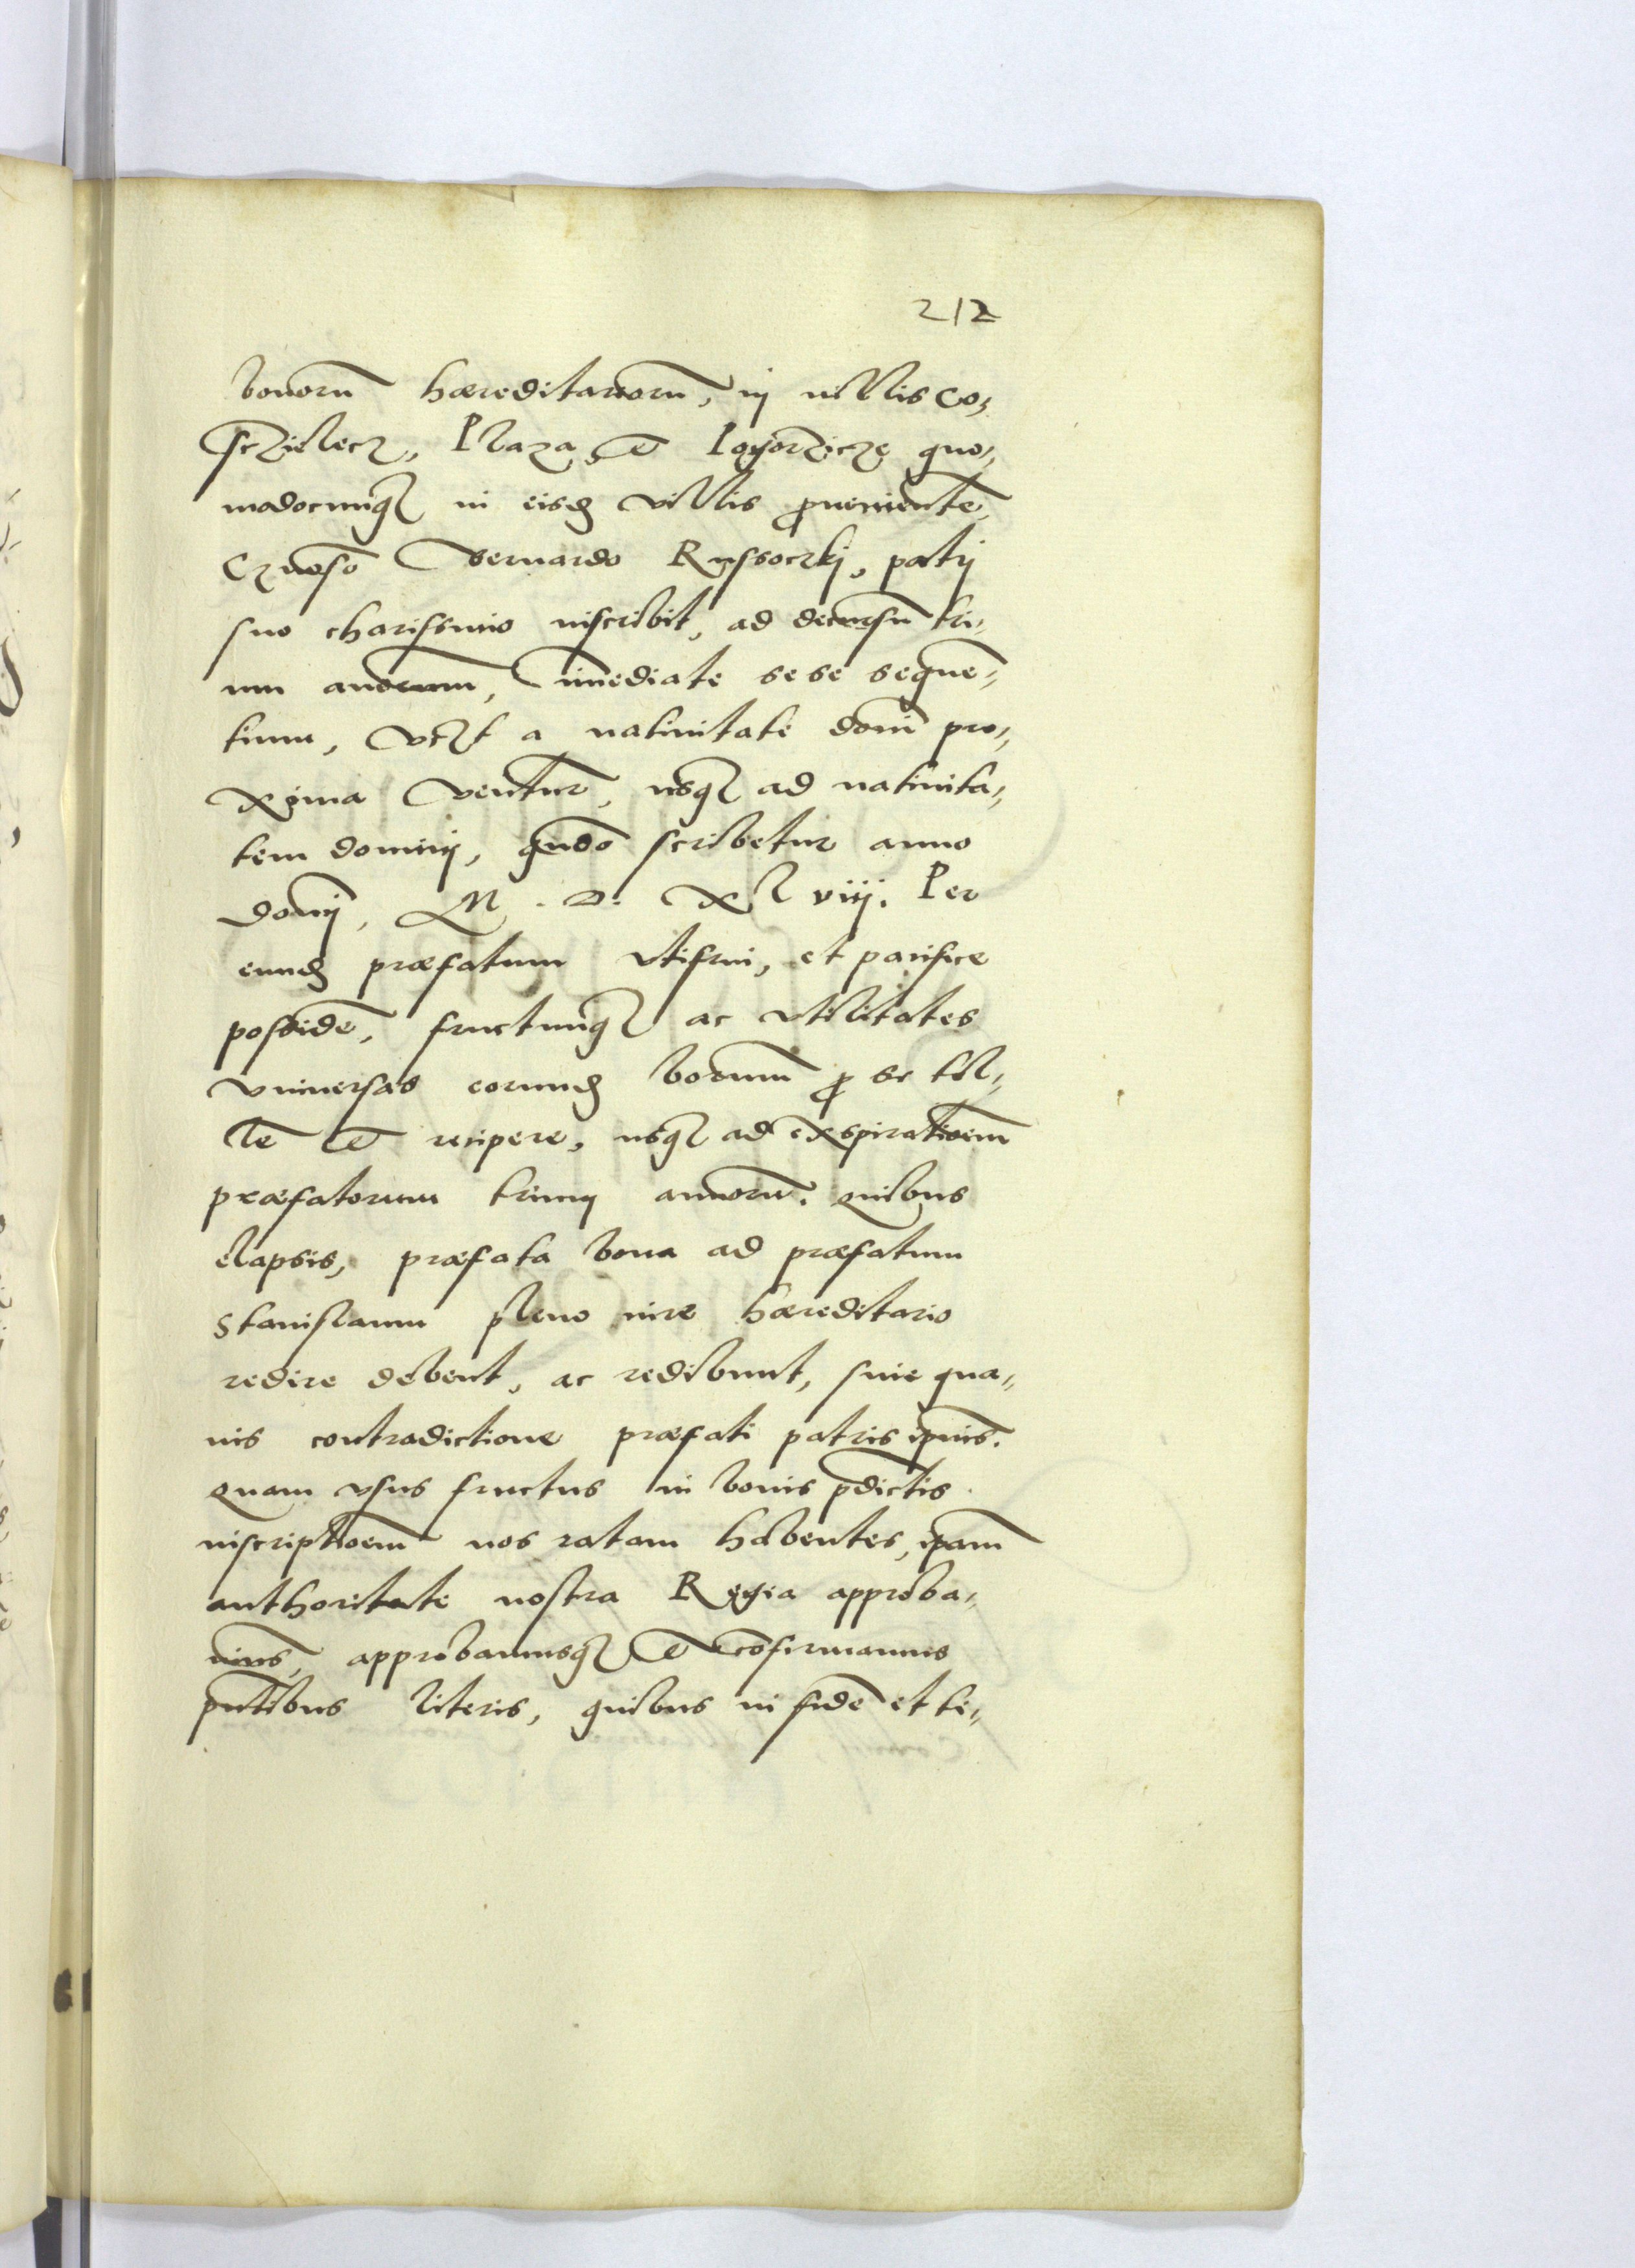 212
bonorū hæreditariorū, in uillis Co⸗
sczielecz, Plaza, et Pogorzicze quo⸗
modocunq in eisd villis ꝓuenientē,
Bernardo Russoczkj, patrj
suo charissimo inscribit, ad decursū tri⸗
um annorum, īmediate sese sequē⸗
tium, vczt a natiuitate domī pro⸗
xima ventur, usq ad natiuita⸗
tem dominj, qndo scribetur anno
domj, M. D. XL viij. Per
eund præfatum vtifrui, et pacifice
possidē, fructumq ac vtilitates
vniuersas eorund bonorum ꝓ se tol⸗
lē et recipere, usq ad exspirationem
præfatorum trium annorū. quibus
elapsis, præfata bona ad præfatum
Stanislaum pleno iure hæreditario
redire debent, ac redibunt, sine qua⸗
uis contradictione præfati patris ipius.
quam vsus fructus in bonis pdictis
inscriptioem nos ratam habentes, ipam
authoritate nostra Regia approba⸗
uimus, approbamusq et cōfirmamus
pntibus literis, quibus in fidē et te⸗